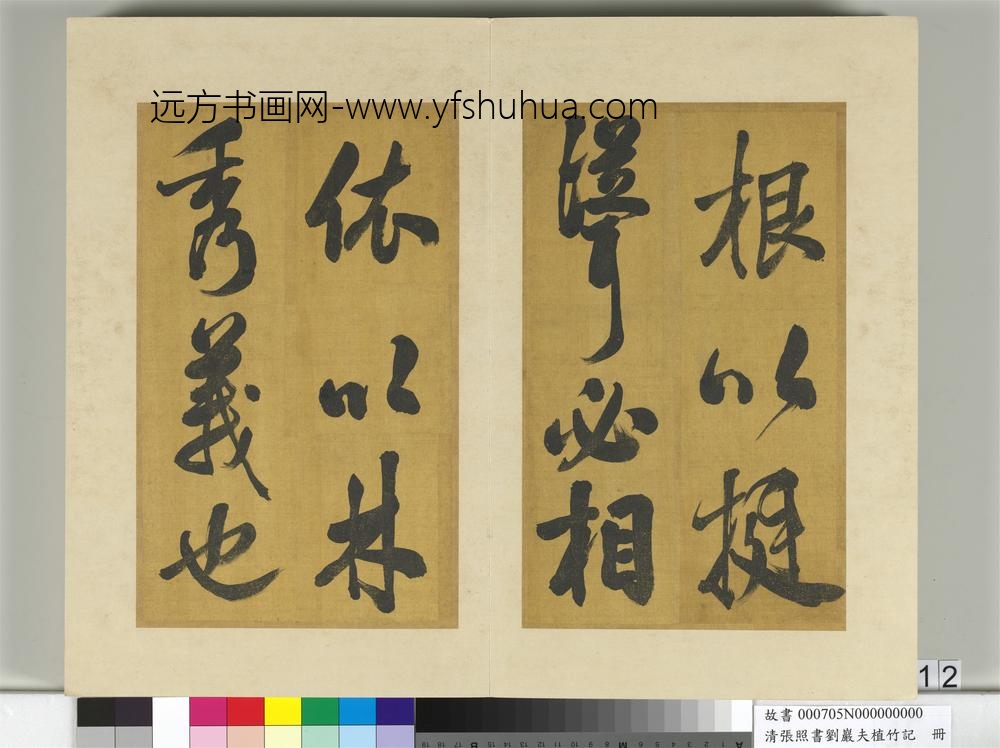 远方书画网-www.yfshuhua.com
根以挺
聳必相
依以林
秀義也
12
故書 000705N000000000
清張照書劉巖夫植竹記 冊